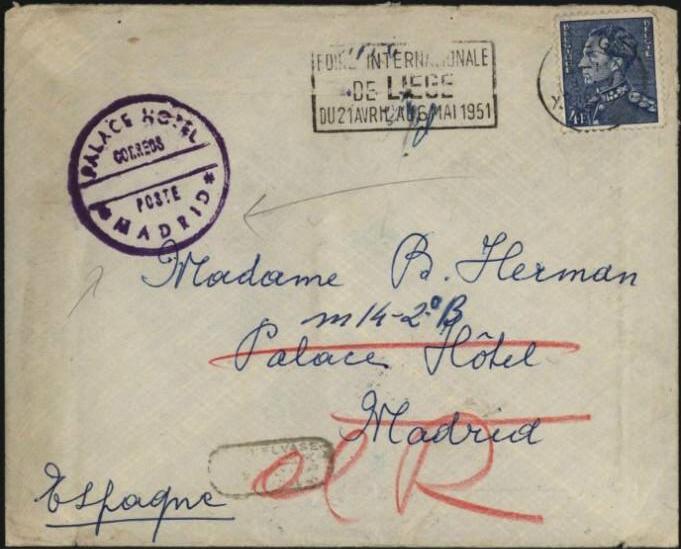 FOIRE INTERNATIONALE
DE LIEGE
DU 21 AVRIL AU 6 MAI 1951
BELGIQUE BELGIE
4F
PALACE HOTEL
CORREOS
POSTE
* MADRID *
Madame B. Herman
m 14-2º B
Palace Hôtel
Madrid
Espagne
R